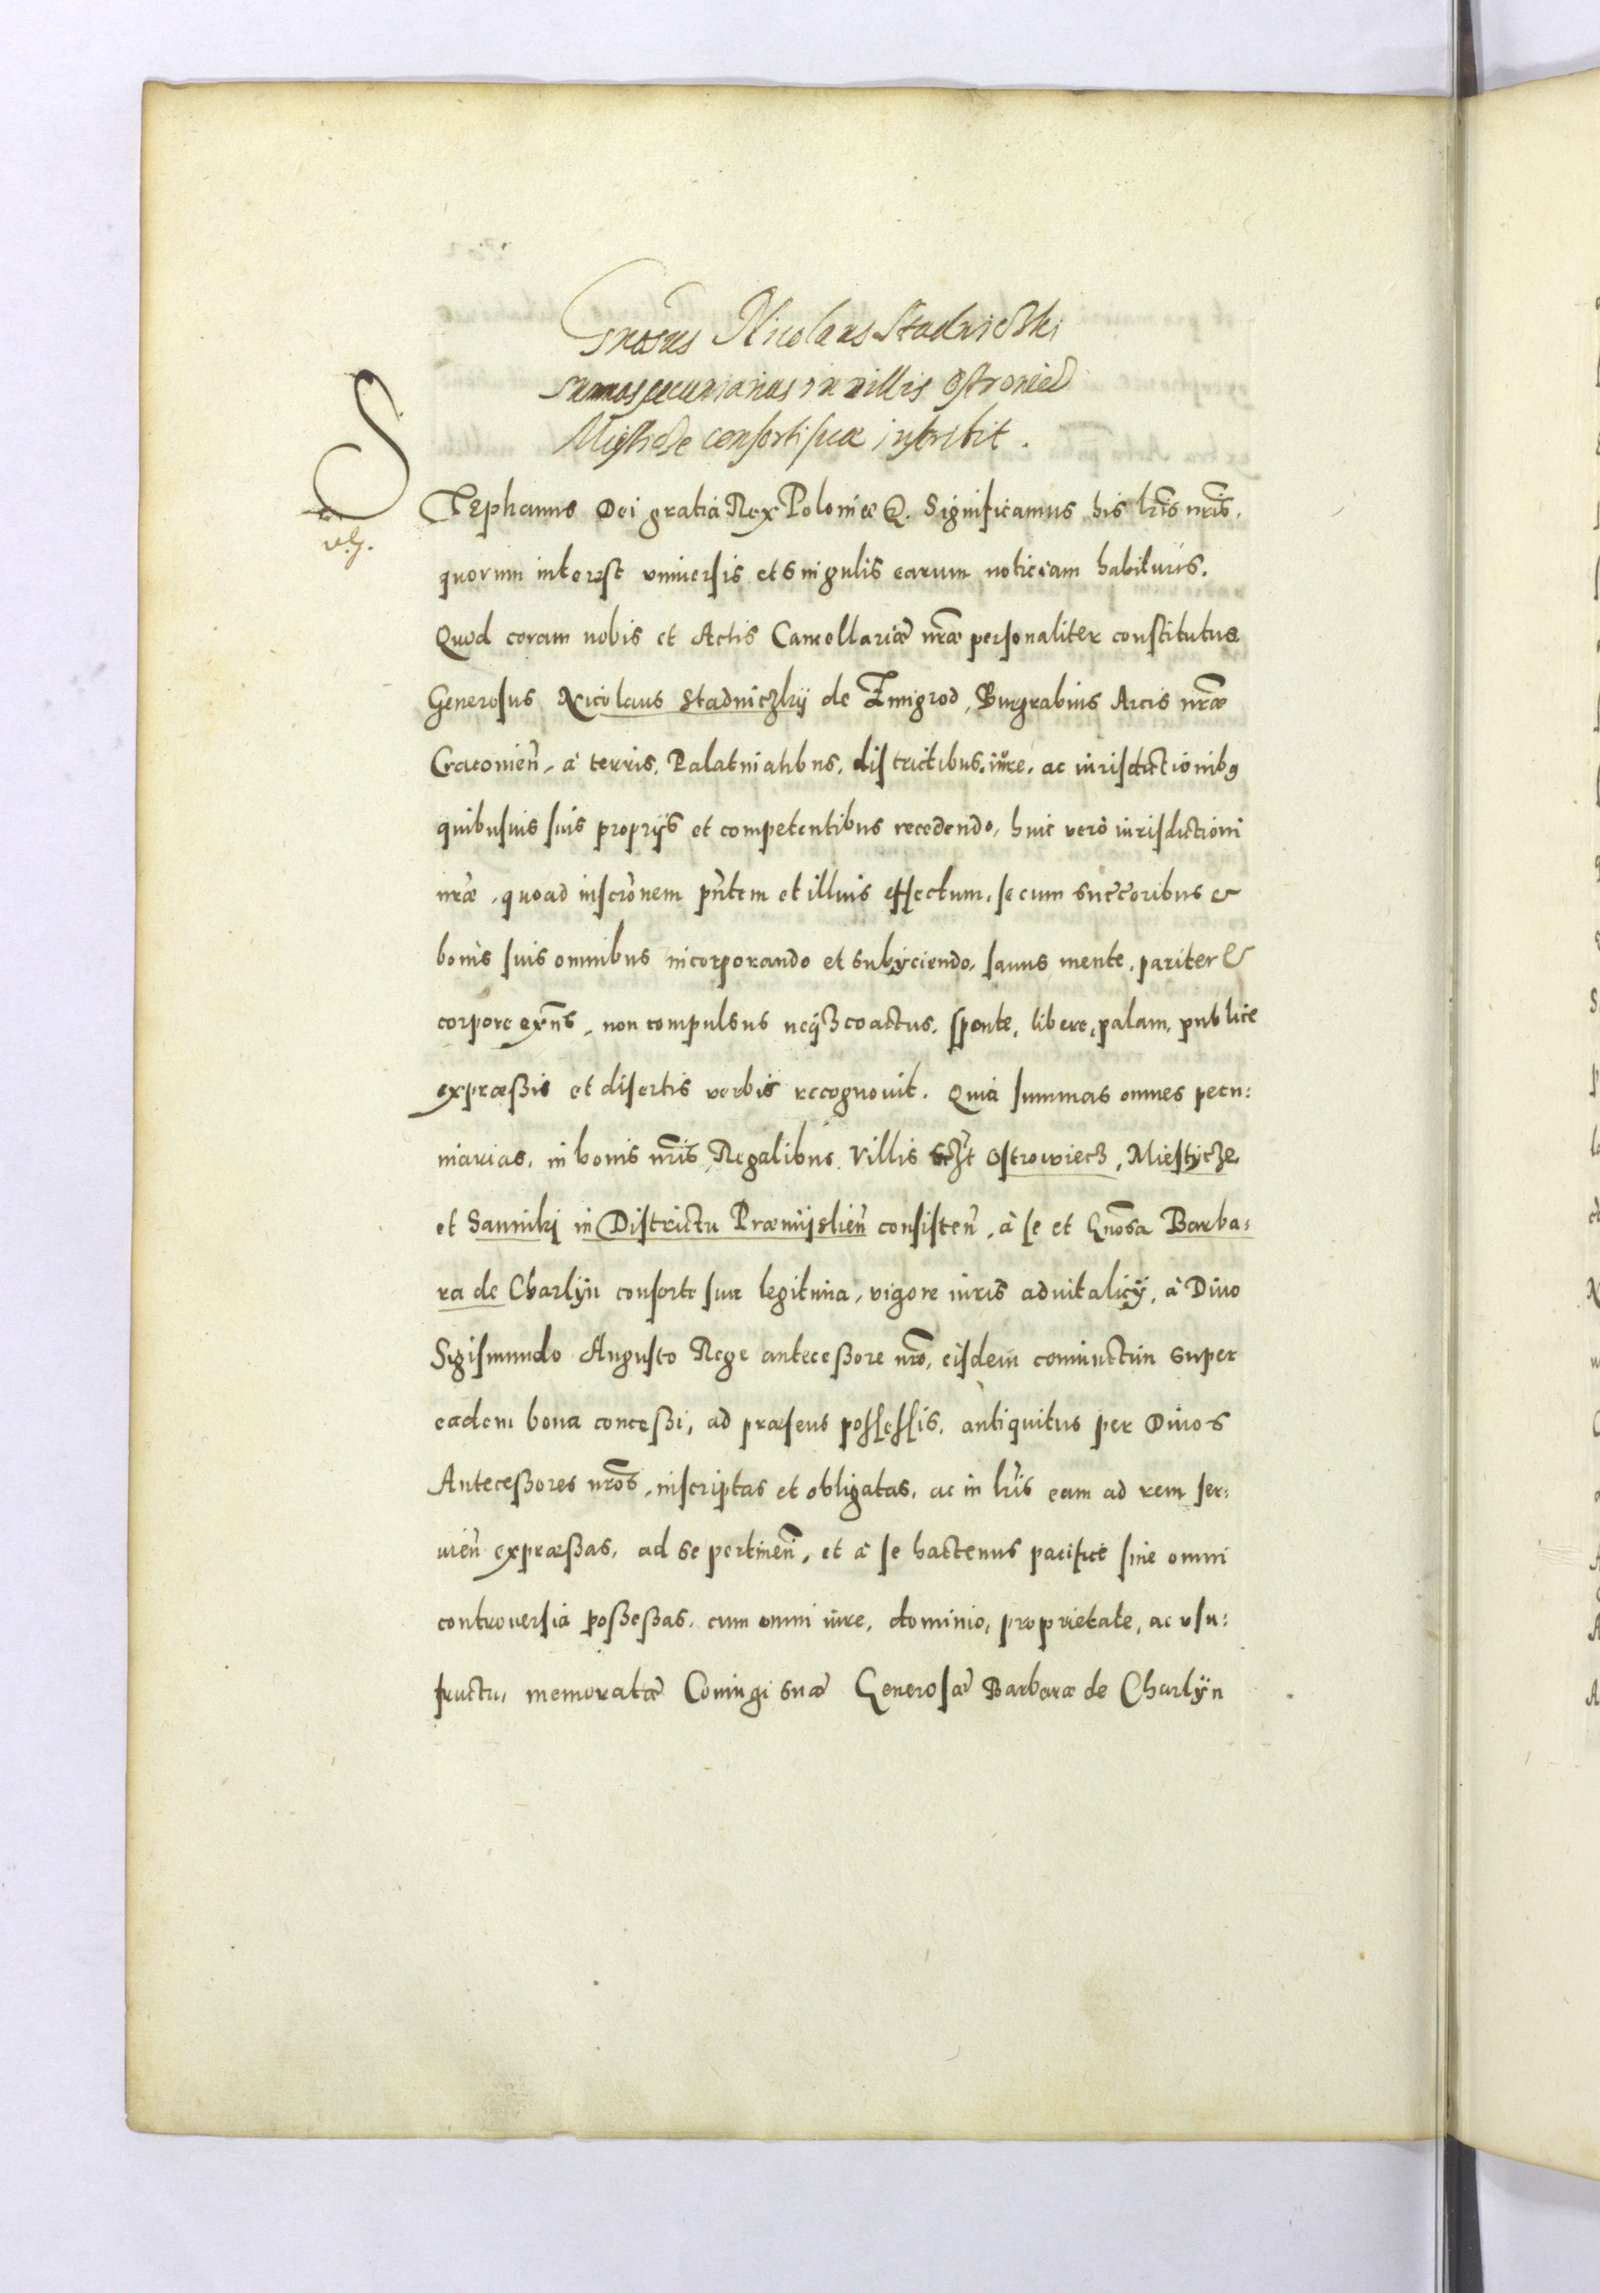 Gnosus Nicolaus Stadnicżki
summas pecuniarias in villis Ostrowiec
consorti suæ inscribit.
STephanus Dei gratia Rex Poloniæ &. Significamus his lris nris,
quorum interest vniuersis et singulis earum noticiam habituris.
Quod coram nobis et Actis Cancellariæ nræ personaliter constitutus
Generosus Nicolaus Stadniczkij de Zmigrod, Burgrabius Arcis nræ
Cracouien, à terris, Palatinatibus, districtibus, iure, ac iurisdictionibq
quibusuis suis proprijs et competentibus recedendo, huic verò iurisdictioni
nræ, quoad inscronem pntem et illius effectum, se cum succoribus et
bonis suis omnibus incorporando et subijciendo, sanus mente, pariter et
corpore exns, non compulsus neqȝ coactus, sponte, libere, palam, publice
expræßis et disertis verbis recognouit. Quia summas omnes pecu:
niarias, in bonis nris Regalibus Villis sczt Ostrowiecz, Miestycze
et Sanniki in Districtu Præmijslien consisten, à se et Gnosa Barba:
ra de Charlÿn consorte sua legitima, vigore iuris aduitalicÿ, à Diuo
Sigismundo Augusto Rege anteceßore nro, eisdem coniunctim super
eadem bona conceßi, ad præsens possessis, antiquitus per Diuos
Anteceßores nros, inscriptas et obligatas, ac in lris eam ad rem ser:
uien expræßas, ad se pertinen, et à se hactenus pacifice sine omni
controuersia poßeßas, cum omni iure, dominio, proprietate, ac vsu:
fructu, memoratæ Coniugi suæ Generosæ Barbaræ de Charlÿn